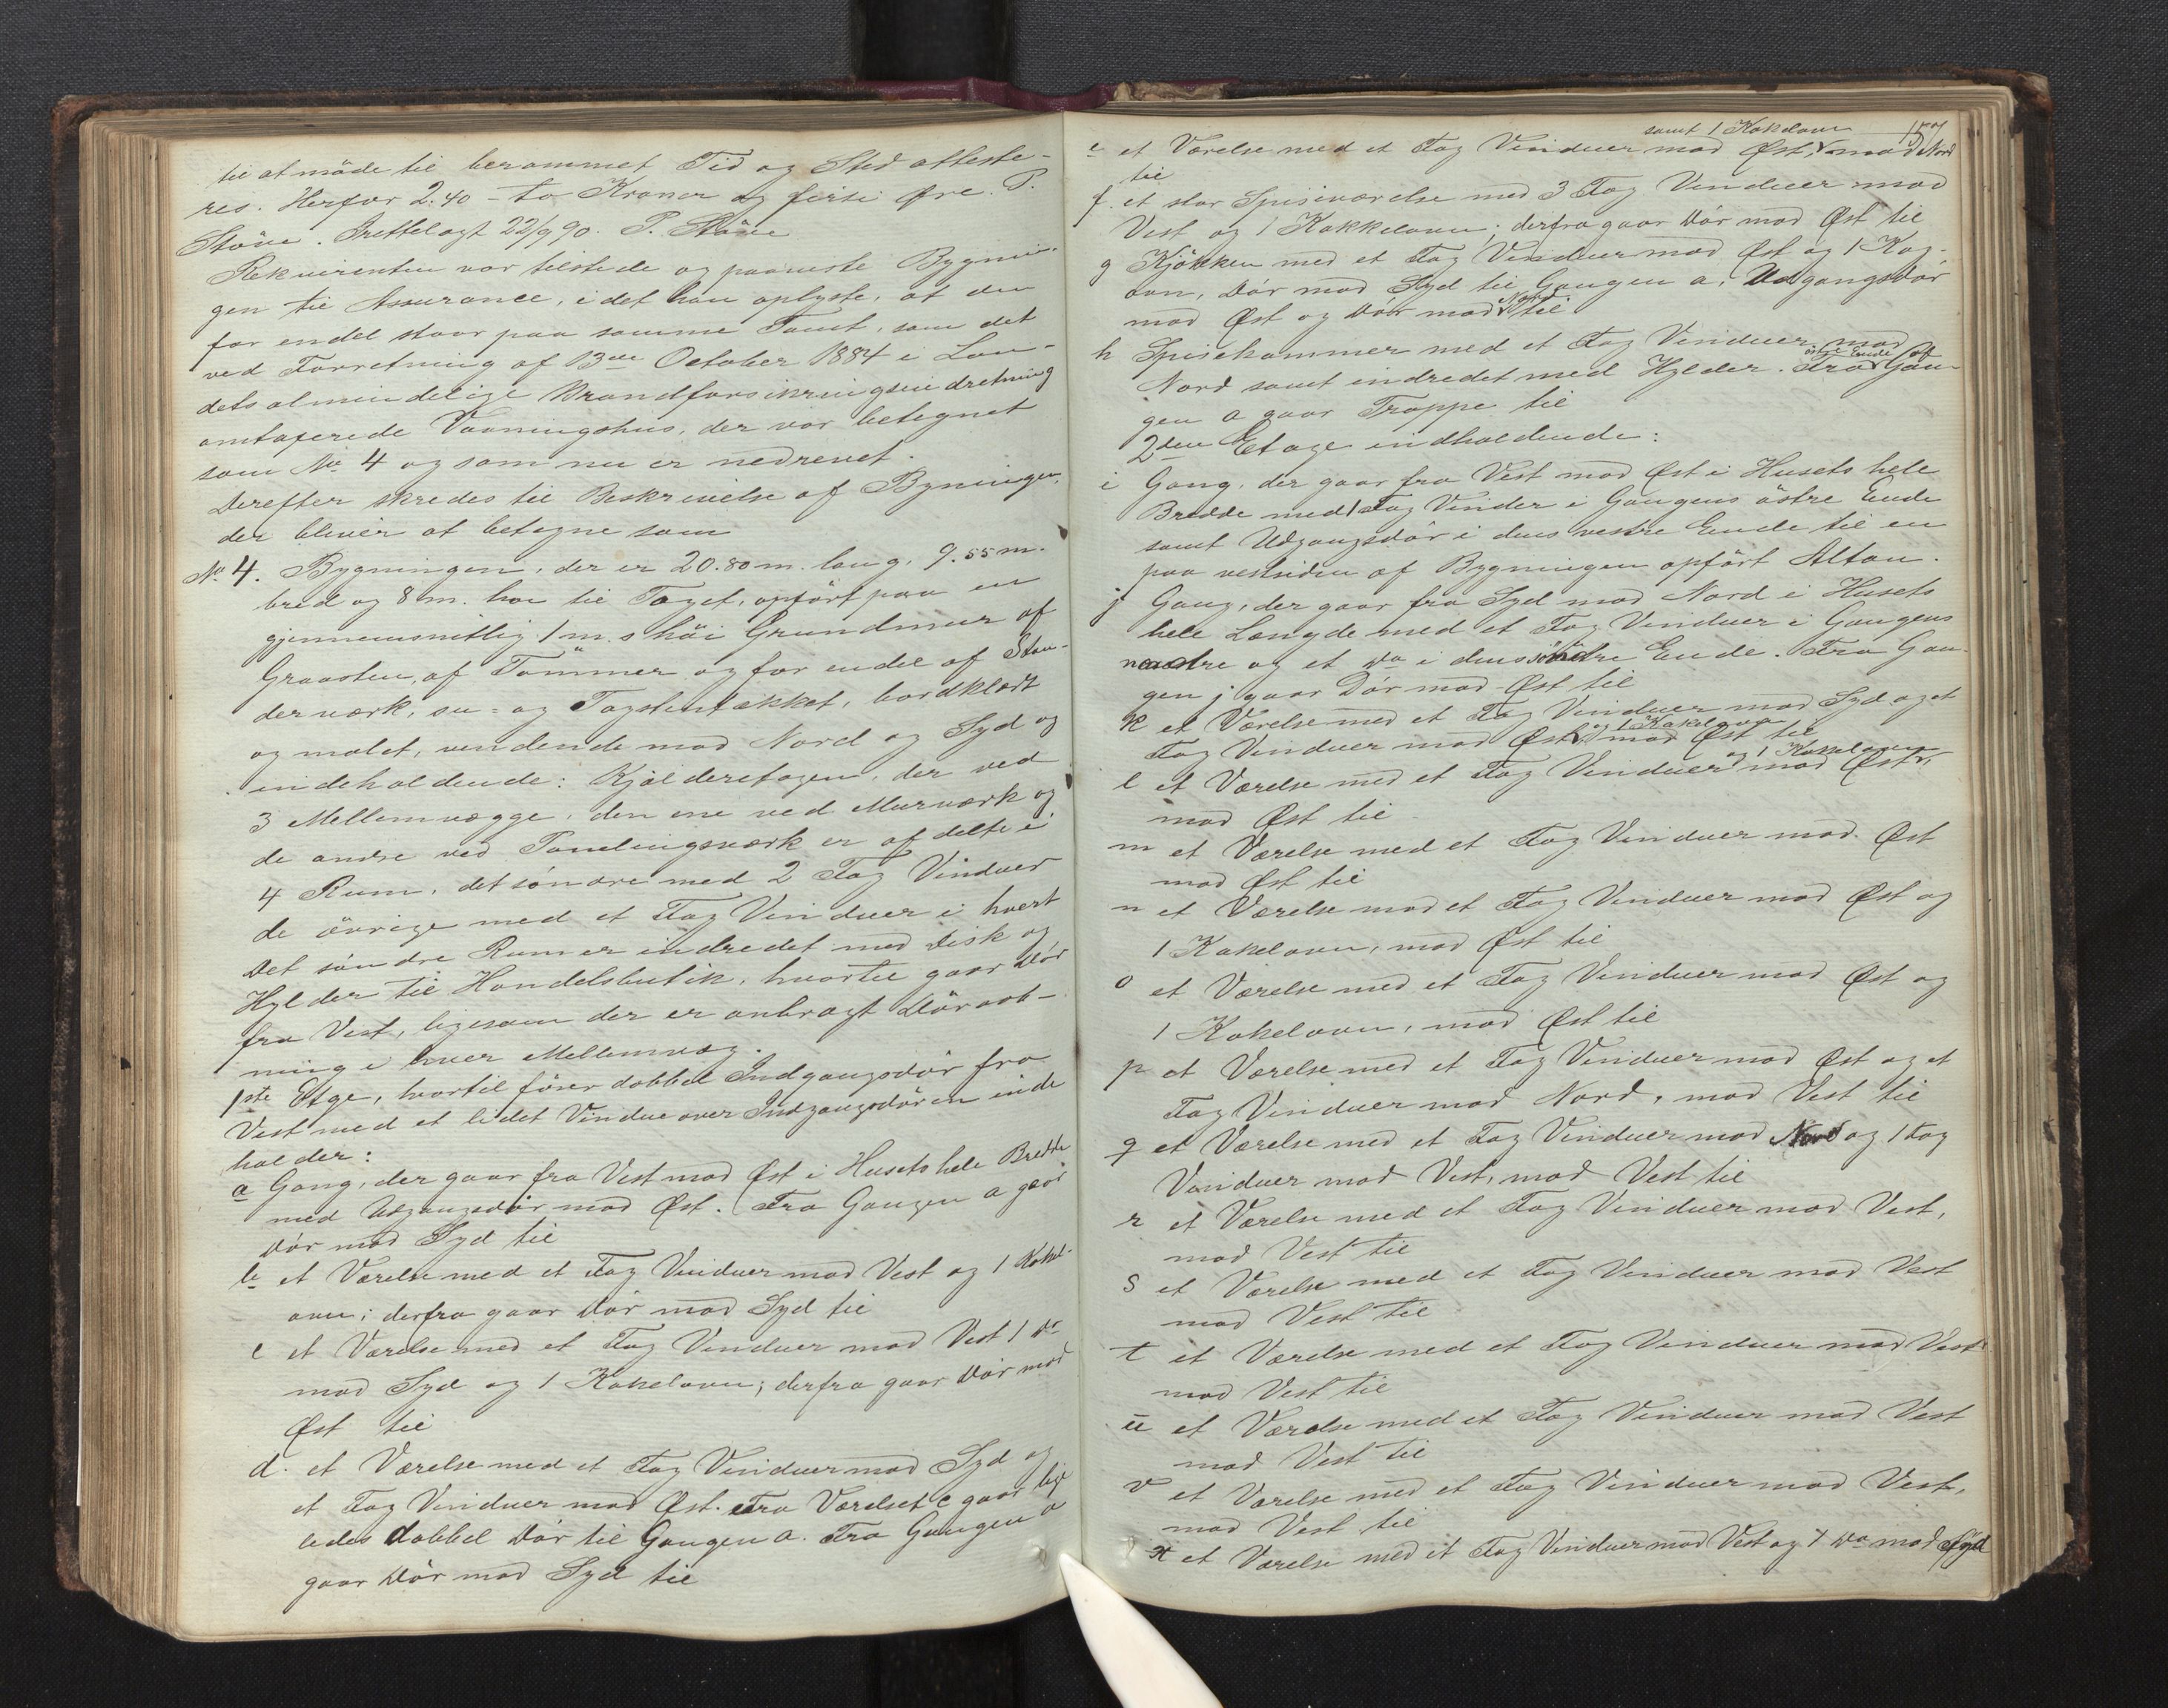 til at møde til berammet Tid og Sted atteste-
res. Herfor 2.40 - to Kroner og firti Øre. P.
Støve. Irettelagt 22/9 90. P. Støve
Rekvirenten var tilstede og paaviste Bygnin-
gen til Assurance, idet han oplyste, at den
for endel staar paa samme Tomt, som det
ved Forretning af 13de October 1884 i Lan-
dets almindelige Brandforsikringsindretning
omtaxerede Vaaningshus, der var betegnet
som No 4 og som nu er nedrevet.
Derefter skredes til Beskrivelse af Bygningen,
der bliver at betegne som
No 4. Bygningen, der er 20.80 m. lang, 9.55 m.
bred og 8 m. høi til Taget, opført paa en
gjennemsnitlig 1 m.s høi Grundmur af
Graasten, af Tømmer og for endel af Stan-
derværk, su- og Tagstentækket, bordklædt
og malet, vendende mod Nord og Syd og
indeholdende: Kjælderetagen, der ved
3 Mellemvægge, den ene ved Murværk og
de andre ved Panelingsværk er afdelte i
4 Rum, det søndre med 2 Fag Vinduer
de øvrige med et Fag Vinduer i hvert
Det søndre Rum er indredet med Disk og
Hylder til Handelsbutik, hvortil gaar Dør
fra Vest, ligesom der er anbragt Døraab-
ning i hver Mellemvæg.
1ste Etge, hvortil fører dobbel Indgangsdør fra
Vest med et lidet Vindue over Indgangsdøren inde
holder:
a Gang, der gaar fra Vest mod Øst i Husets hele Bredde
med Udgangsdør mod Øst. Fra Gangen a gaar
Dør mod Syd til
b et Værelse med et Fag Vinduer mod Vest og 1 Kakel-
ovn; derfra gaar Dør mod Syd til
c et Værelse med et Fag Vinduer mod Vest 1 Do
mod Syd og 1 Kakelovn; derfra gaar Dør mod
Øst til
d. et Værelse med et Fag Vinduer mod Syd og
et Fag Vinduer mod Øst. Fra Værelset c gaar lige
ledes dobbel Dør til Gangen a. Fra Gangen a
gaar Dør mod Syd til
samt 1 Kakelovn 157
e et Værelse med et Fag Vinduer mod Øst, mod Nord
til
f. et stor Spiseværelse med 3 Fag Vinduer mod
Vest og 1 Kakkelovn; derfra gaar Dør mod Øst til
g Kjøkken med et Fag Vinduer mod Øst og 1 Kog-
ovn, Dør mod Syd til Gangen a, Udgangsdør
mod Øst og Dør mod Nord til
h Spisekammer med et Fag Vinduer mod
Nord samt indredet med Hylder. Fra østre Ende af Gan-
gen a gaar Trappe til
2den Etage indholdende:
i Gang, der gaar fra Vest mod Øst i Husets hele
Bredde med 1 Fag Vinder i Gangens østre Ende
samt Udgangsdør i dens vestre Ende til en
paa vestsiden af Bygningen opført Altan.
j Gang, der gaar fra Syd mod Nord i Husets
hele Længde med et Fag Vinduer i Gangens
nordre og et Do i dens søndre Ende. Fra Gan-
gen j gaar Dør mod Øst til
k et Værelse med et Fag Vinduer mod Syd og et
Fag Vinduer mod Øst og 1 Kakelovn, mod Øst til
l et Værelse med et Fag Vinduer mod Øst og 1 Kakelovn,
mod Øst til
m et Værelse med et Fag Vinduer mod Øst
mod Øst til
n et Værelse med et Fag Vinduer mod Øst og
1 Kakelovn, mod Øst til
o et Værelse med et Fag Vinduer mod Øst og
1 Kakelovn, mod Øst til
p et Værelse med et Fag Vinduer mod Øst og et
Fag Vinduer mod Nord, mod Vest til
q et Værelse med et Fag Vinduer mod Nord og 1 Fag
Vinduer mod Vest, mod Vest til
r et Værelse med et Fag Vinduer mod Vest,
mod Vest til
s et Værelse med et Fag Vinduer mod Vest
mod Vest til
t et Værelse med et Fag Vinduer mod Vest
mod Vest til
u et Værelse med et Fag Vinduer mod Vest
mod Vest til
v et Værelse med et Fag Vinduer mod Vest,
mod Vest til
x et Værelse med et Fag Vinduer mod Vest og 1 Do mod Syd